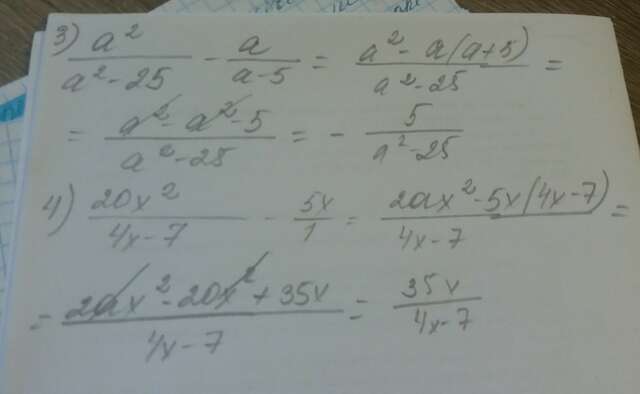 3) a²/(a²-25) - a/(a-5) = (a²-a(a+5))/(a²-25) =
= (a²-a²-5)/(a²-25) = - 5/(a²-25)
4) 20x²/(4x-7) - 5x/1 = (20x²-5x(4x-7))/(4x-7) =
= (20x²-20x²+35x)/(4x-7) = 35x/(4x-7)